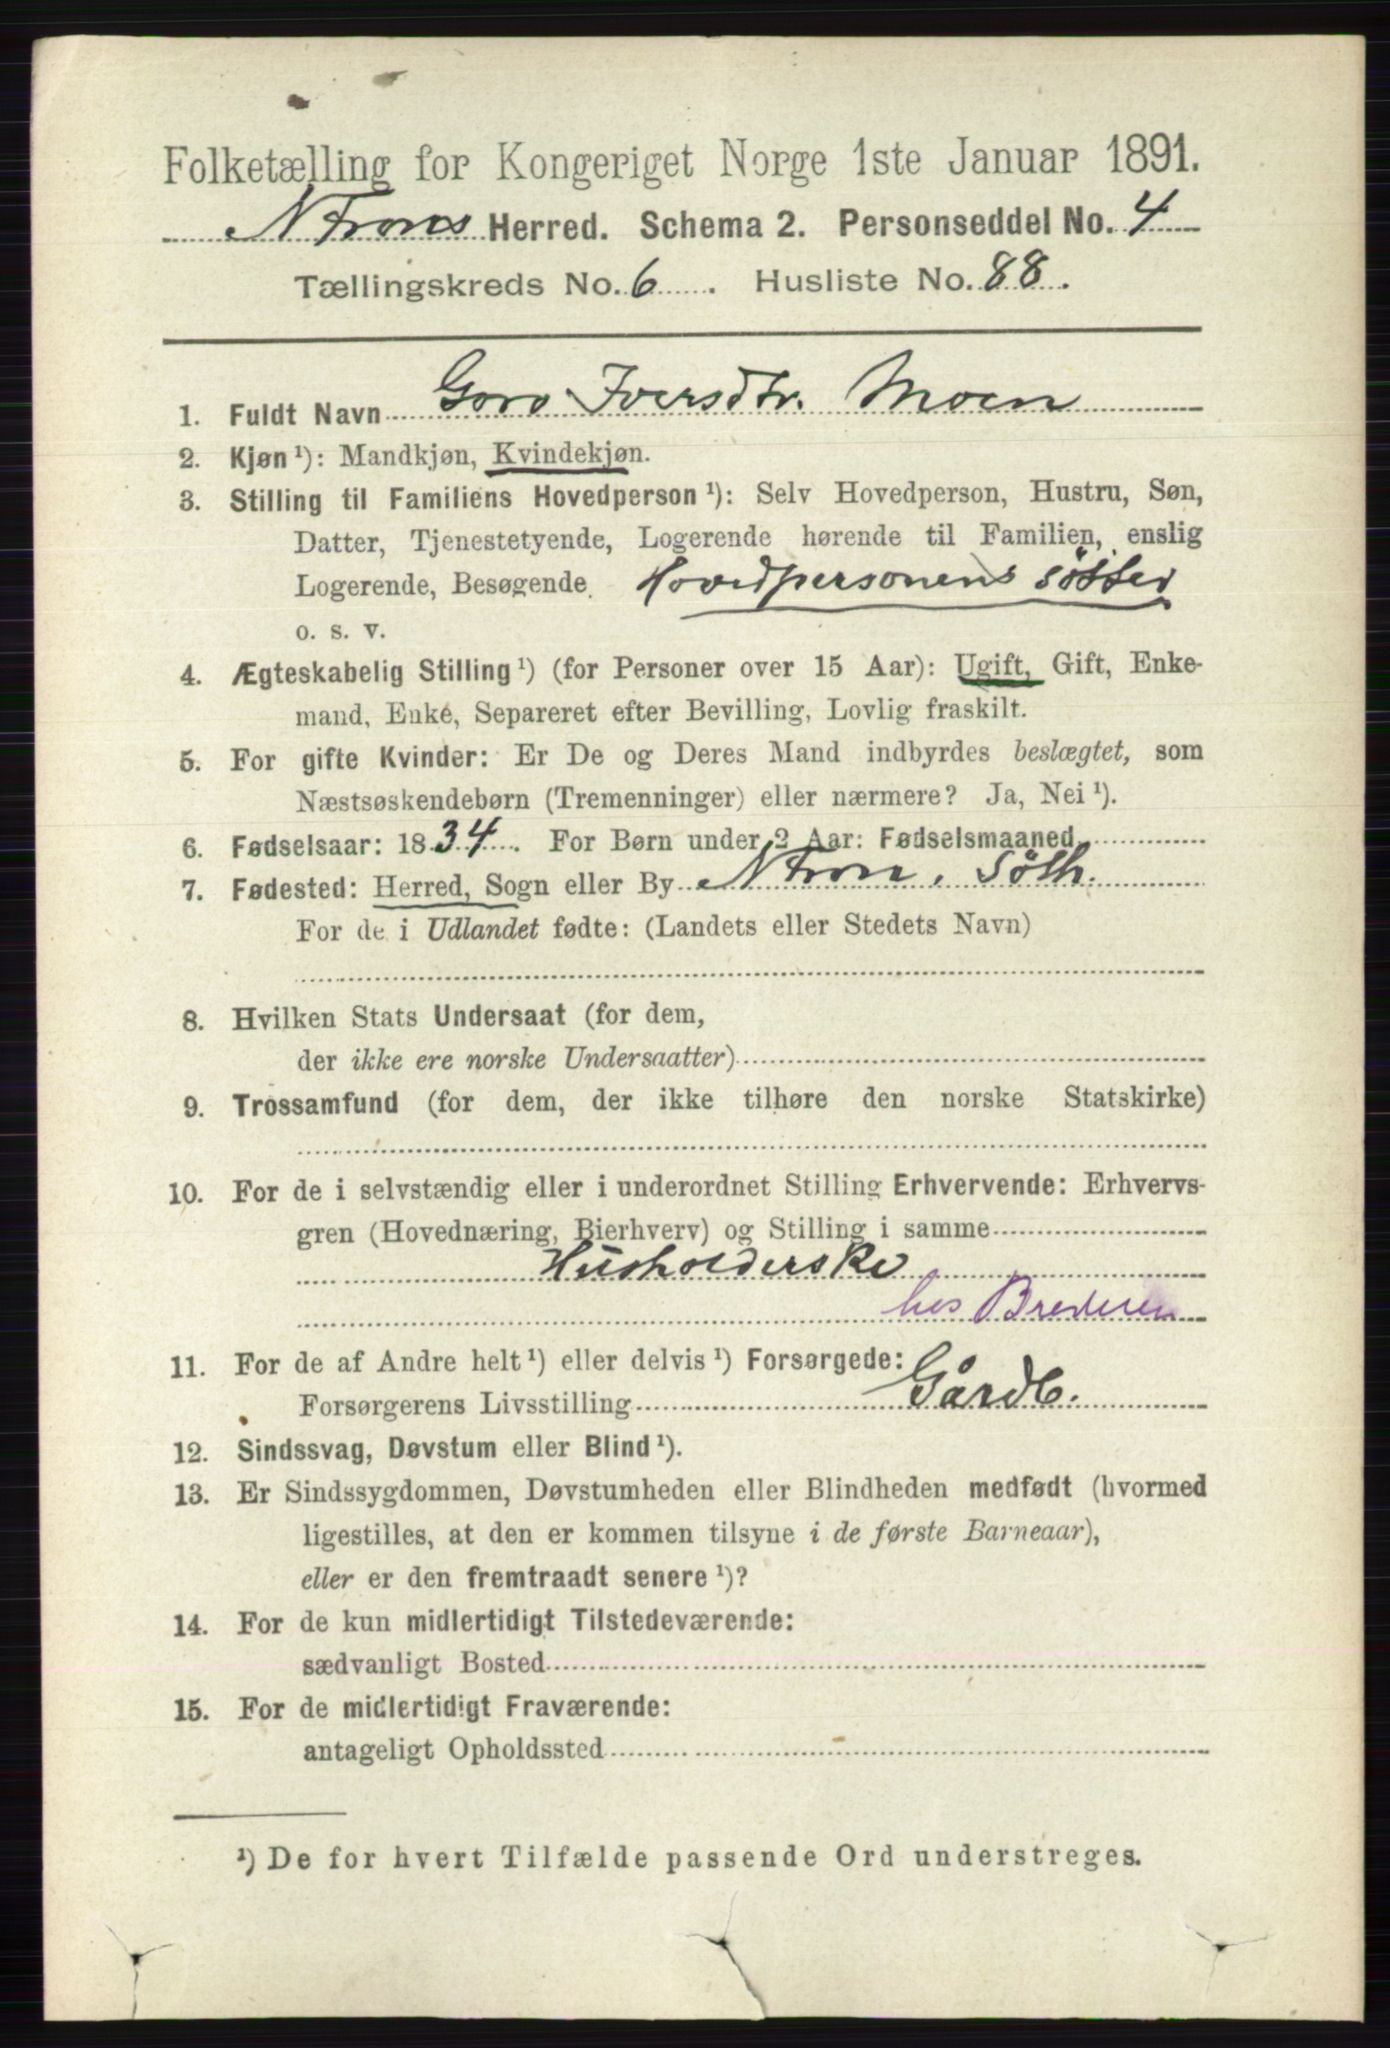 Folketælling for Kongeriget Norge 1ste Januar 1891.
N Frons Herred. Schema 2. Personseddel No. 4
Tællingskreds No. 6. Husliste No. 88.
1. Fuldt Navn Goro Iversdtr. Moen
2. Kjøn ¹): Mandkjøn, Kvindekjøn.
3. Stilling til Familiens Hovedperson ¹): Selv Hovedperson, Hustru, Søn,
Datter, Tjenestetyende, Logerende hørende til Familien, enslig
Logerende, Besøgende Hovedpersonens søster
o. s. v.
4. Ægteskabelig Stilling ¹) (for Personer over 15 Aar): Ugift, Gift, Enke-
mand, Enke, Separeret efter Bevilling, Lovlig fraskilt.
5. For gifte Kvinder: Er De og Deres Mand indbyrdes beslægtet, som
Næstsøskendebørn (Tremenninger) eller nærmere? Ja, Nei ¹).
6. Fødselsaar: 1834. For Børn under 2 Aar: Fødselsmaaned
7. Fødested: Herred, Sogn eller By N Fron,
For de i Udlandet fødte: (Landets eller Stedets Navn)
8. Hvilken Stats Undersaat (for dem,
der ikke ere norske Undersaatter)
9. Trossamfund (for dem, der ikke tilhøre den norske Statskirke)
10. For de i selvstændig eller i underordnet Stilling Erhvervende: Erhvervs-
gren (Hovednæring, Bierhverv) og Stilling i samme
Husholderske
hos Broderen
11. For de af Andre helt ¹) eller delvis ¹) Forsørgede:
Forsørgerens Livsstilling Gårdb.
12. Sindssvag, Døvstum eller Blind ¹).
13. Er Sindssygdommen, Døvstumheden eller Blindheden medfødt (hvormed
ligestilles, at den er kommen tilsyne i de første Barneaar),
eller er den fremtraadt senere ¹)?
14. For de kun midlertidigt Tilstedeværende:
sædvanligt Bosted
15. For de midlertidigt Fraværende:
antageligt Opholdssted
¹) De for hvert Tilfælde passende Ord understreges.